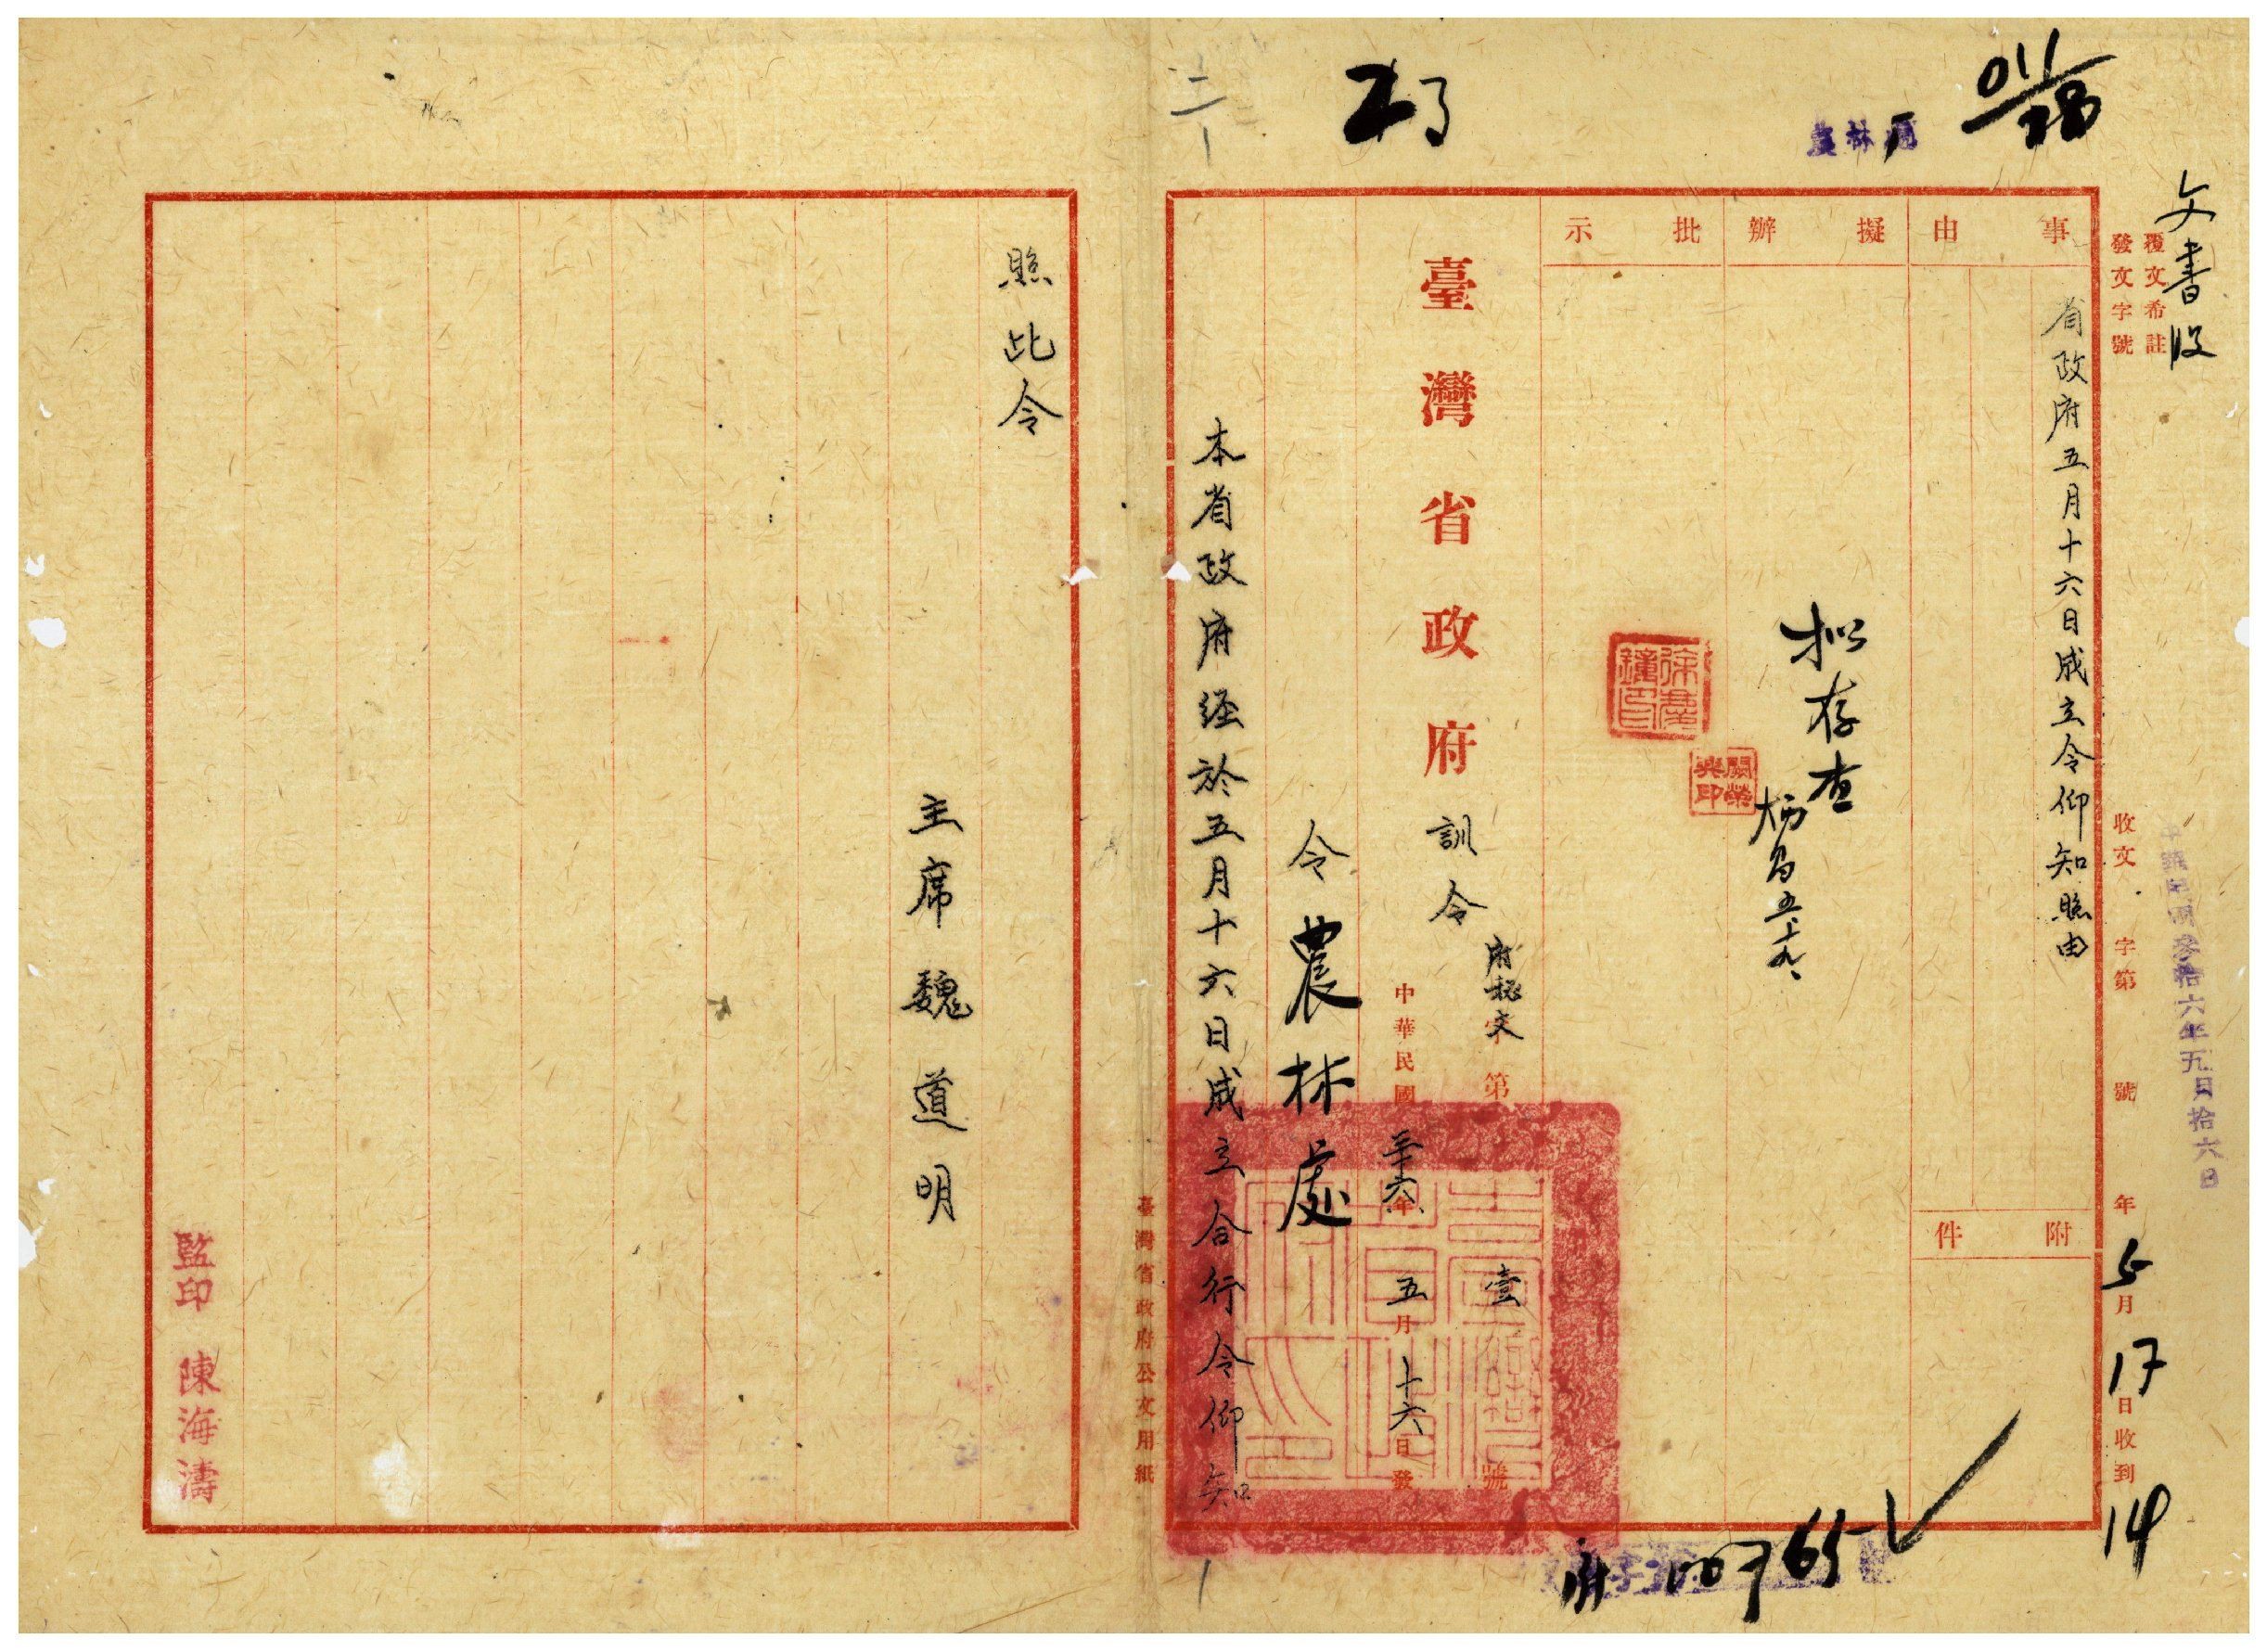 文書收
覆文希註
發文字號
收文 字第 號
年5月17日收到
14
中華民國參拾六年五月拾六日
事由
省政府五月十六日成立令仰知照由
附件
擬辦
拟存查
批示
臺灣省政府訓令
府秘文字第壹號
中華民國三十六年五月十六日發
令農林處
本省政府經於五月十六日成立合行令仰知
臺灣省政府公文用紙
照此令
主席魏道明
監印 陳海濤